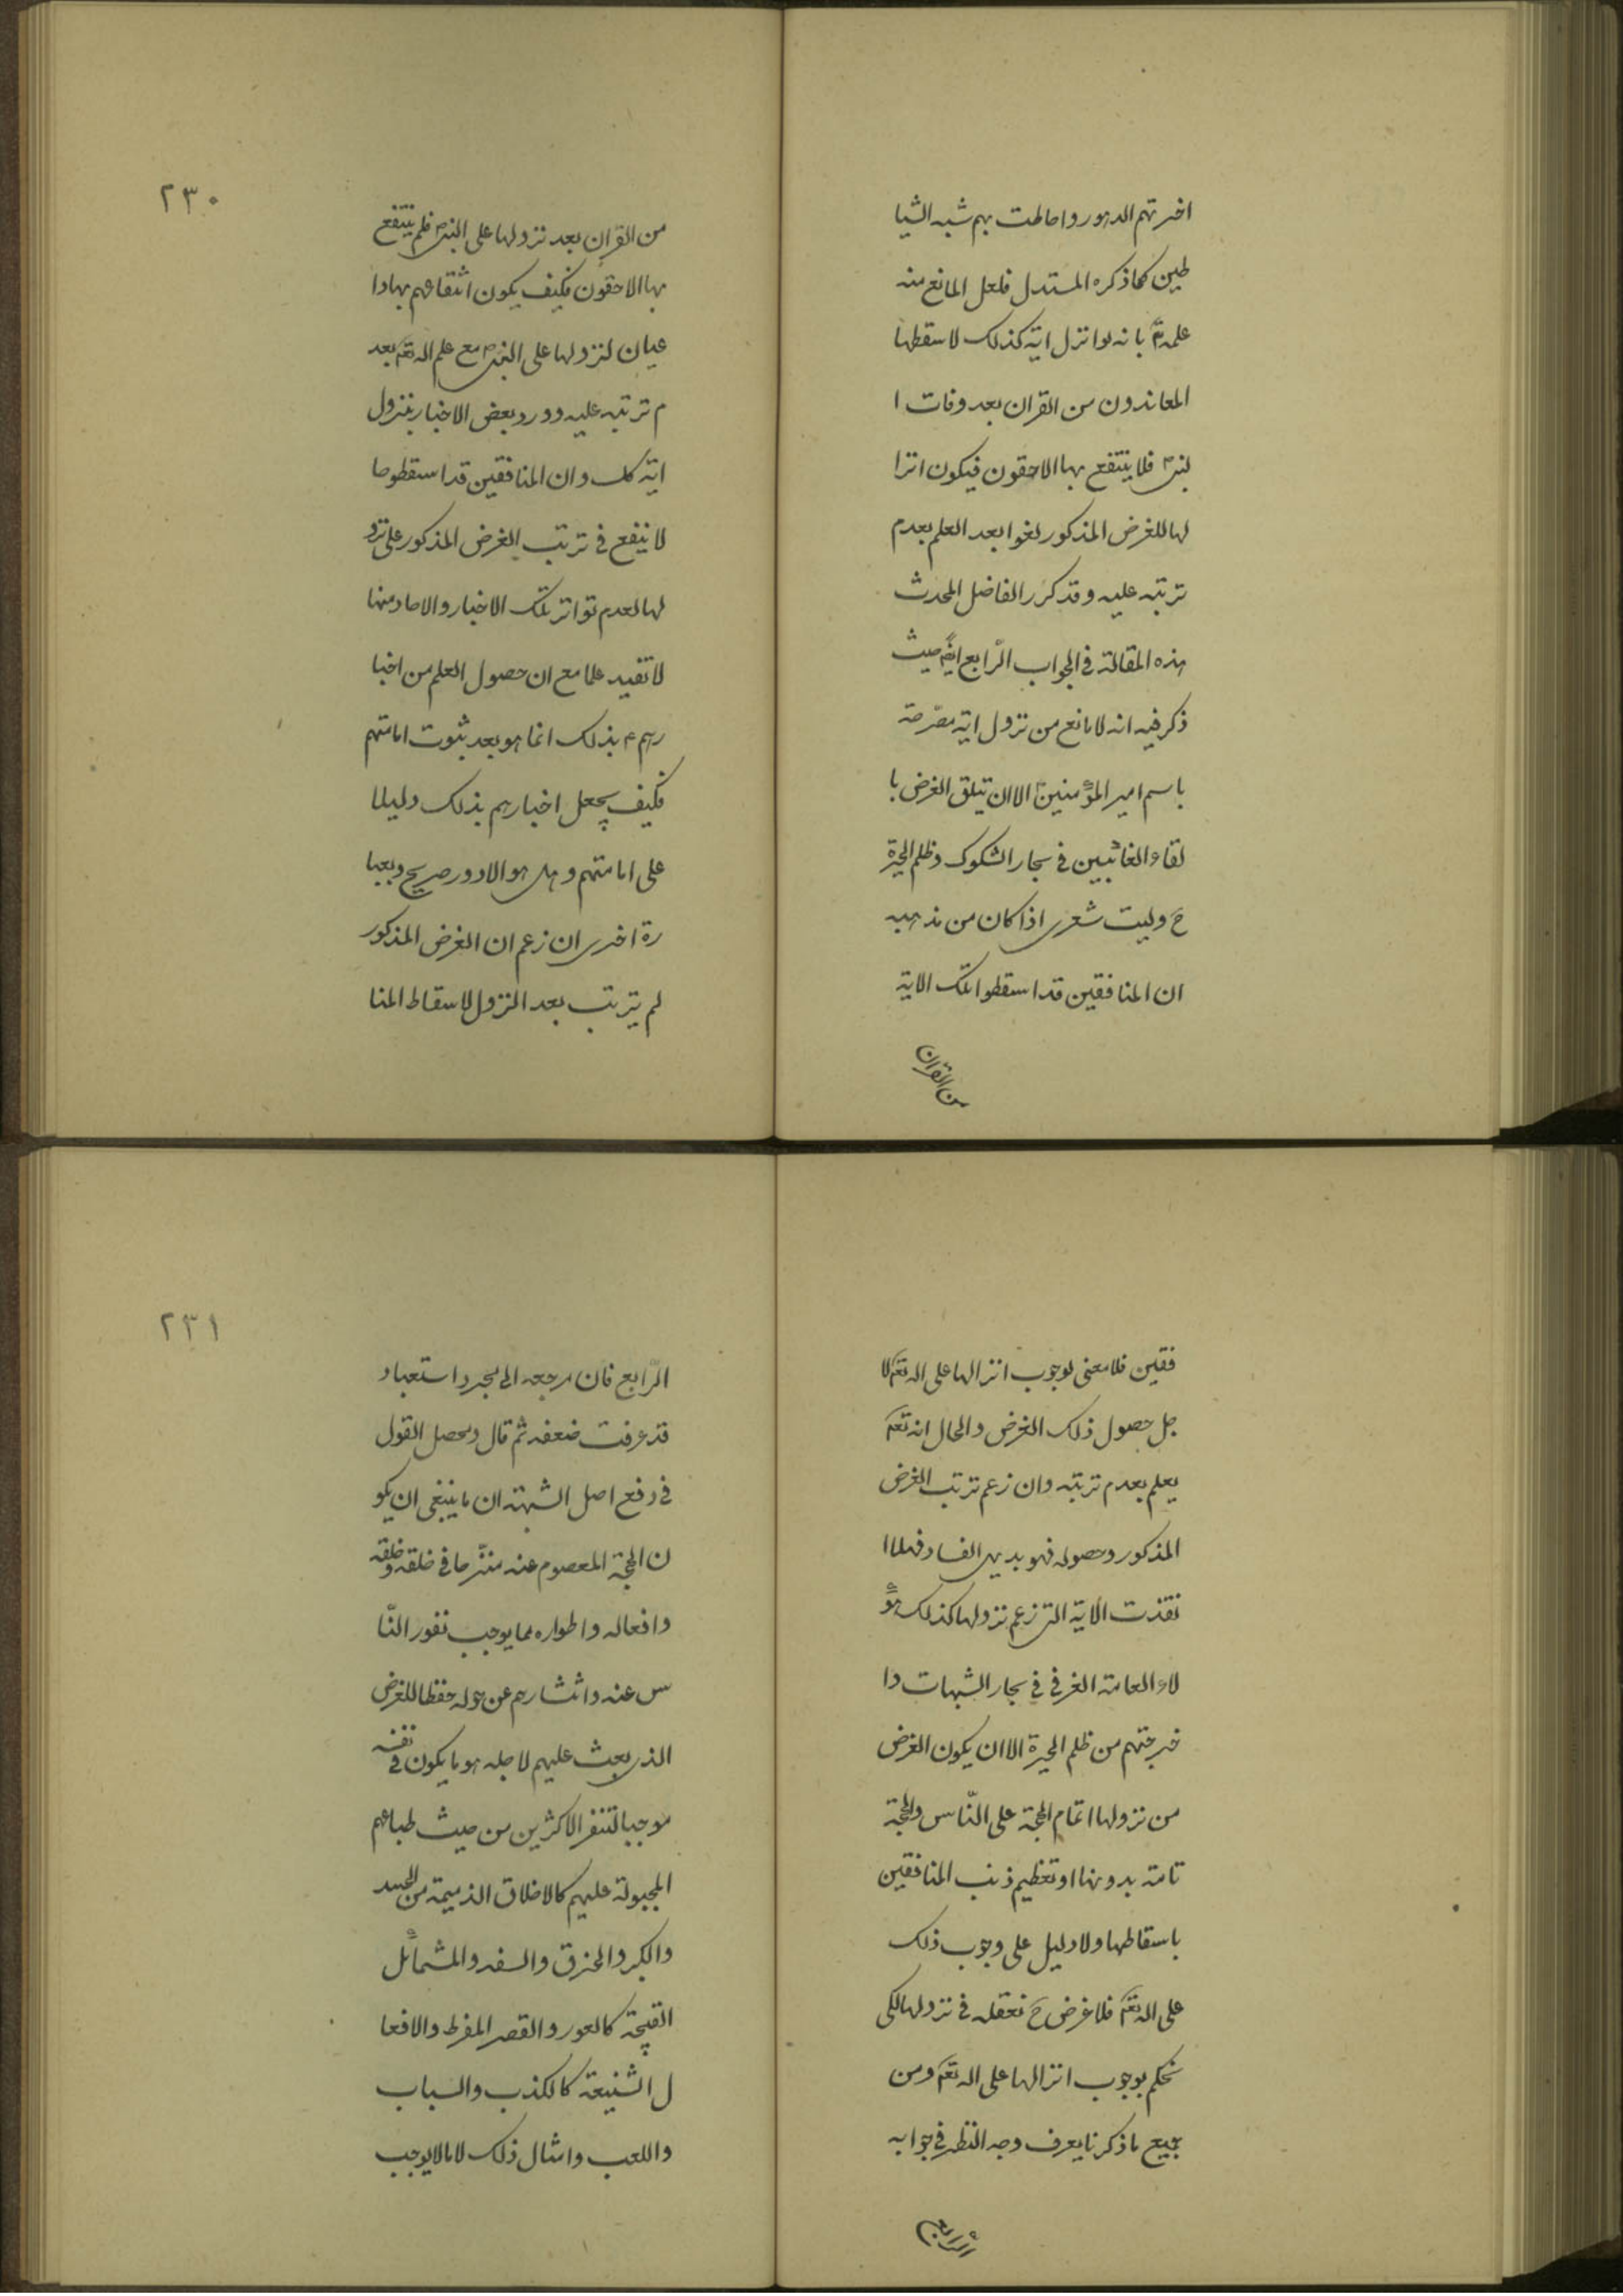 اخرتهم الدهور واحاطت بهم شبه الشيا
طين كما ذكره المستدل فلعل المانع منه
علمه تع بانه لو انزل اية كذلك لاسقطها
المعاندون من القران بعد وفات ا
لنبي ص فلا ينتفع بها الاحقون فيكون انزا
لها للغرض المذكور لغوا بعد العلم بعدم
ترتبه عليه وقد كرر الفاضل المحدث
هذه المقالة في الجواب الرّابع ايضً حيث
ذكر فيه انه لا مانع من نزول اية مصرّحة
باسم امير المؤمنين ع الا ان تيلق الغرض با
لقاء الغائبين في بحار الشكوك وظلم الحيرة
ح وليت شعري اذا كان من مذهبه
ان المنافقين قد اسقطوا تلك الاية
من القران
٢٣٠
من القران بعد نزولها على النبي ص فلم ينتفع
بها الاحقون فكيف يكون انتفاعهم بها دا
عيان لنزولها على النبي ص مع علم اله تع بعد
م ترتبه عليه وورود بعض الاخبار بنزول
اية كك وان المنافقين قد اسقطوها
لا ينفع في ترتب الغرض المذكور على نزو
لها لعدم تواتر تلك الاخبار والاحاد منها
لا تفيد علما مع ان حصول العلم من اخبا
رهم ع بذلك انما هو بعد ثبوت امامتهم
فكيف يجعل اخبارهم بذلك دليلا
على امامتهم وهل هو الا دور صريح وبعبا
رة اخرى ان زعم ان الغرض المذكور
لم يترتب بعد النزول لاسقاط المنا
فقين فلا معنى لوجوب انزالها على اله تع لا
جل حصول ذلك الغرض والحال انه تع
يعلم بعدم ترتبه وان زعم ترتب الغرض
المذكور وحصوله فهو بديهي الفساد فهلا ا
نقذت الاية التي زعم نزولها كذلك هؤ
لاء العامة الغرقى في بحار الشبهات وا
خرجتهم من ظلم الحيرة الا ان يكون الغرض
من نزولها اتمام الحجة على النّاس والحجة
تامة بدونها او تعظيم ذنب المنافقين
باسقاطها ولا دليل على وجوب ذلك
على اله تع فلا غرض ح نعقله في نزولها لكى
نحكم بوجوب انزالها على اله تع ومن
جميع ما ذكرنا يعرف وجه النظر في جوابه
الرّابع
٢٣١
الرّابع فان مرجعه الى مجرد استعباد
قد عرفت ضعفه ثم قال ومحصل القول
في دفع اصل الشبهة ان ما ينبغي ان يكو
ن الحجة المعصوم عنه منزّها في خلقه وخلقه
وافعاله واطواره مما يوجب نفور النّا
س عنه وانتشارهم عن حوله حفظا للغرض
الذي بعث عليهم لاجله هو ما يكون في نفسه
موجبا لتنفر الاكثرين من حيث طباعهم
المجبولة عليهم كالاخلاق الذميمة من الحسد
والكبر والخرق والسفه والشمائل
القبيحة كالعور والقصر المفرط والافعا
ل الشنيعة كالكذب والسباب
واللعب وامثال ذلك لا ما لا يوجب